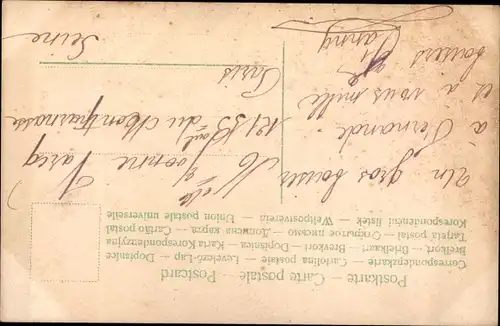 Postkarte — Carte postale — Postcard
Correspondenzkarte — Cartolina postale — Levelező-Lap — Dopisnice
Brefkort — Briefkaart — Brevkort — Dopisnica — Karta Korespondencyjna
Tarjeta postal — Открытое письмо — Дописна карта — Cartão postal
Korespondenční lístek — Weltpostverein — Union postale universelle
Un gros baiser
à Fernande
et à vous mille
baisers
Fanny
Melle Yvonne
121 Bd
du Montparnasse
Paris
Seine